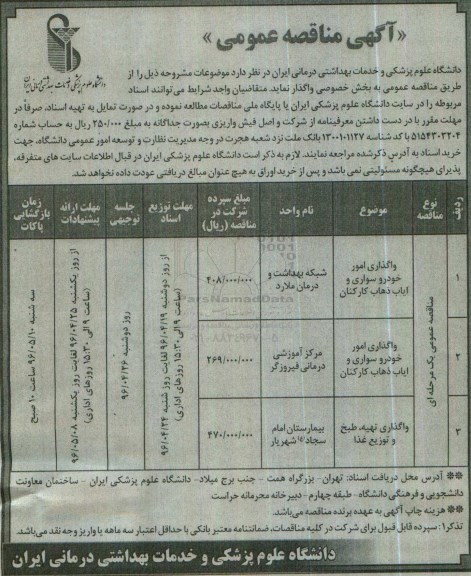 «آگهی مناقصه عمومی»
دانشگاه علوم پزشکی و خدمات بهداشتی درمانی ایران
دانشگاه علوم پزشکی و خدمات بهداشتی درمانی ایران در نظر دارد موضوعات مشروحه ذیل را از
طریق مناقصه عمومی به بخش خصوصی واگذار نماید. متقاضیان واجد شرایط می‌توانند اسناد
مربوطه را در سایت دانشگاه علوم پزشکی ایران یا پایگاه ملی مناقصات مطالعه نموده و در صورت تمایل به تهیه اسناد، صرفاً در
مهلت مقرر با در دست داشتن معرفینامه از شرکت و اصل فیش واریزی بصورت جداگانه به مبلغ ۲۵۰/۰۰۰ ریال به حساب شماره
۵۱۵۴۳۰۳۲۰۴ با کد شناسه ۱۳۰۰۱۰۱۱۲۷ بانک ملت نزد شعبه هجرت در وجه مدیریت نظارت و توسعه امور عمومی دانشگاه، جهت
خرید اسناد به آدرس ذکر شده مراجعه نمایند. لازم به ذکر است دانشگاه علوم پزشکی ایران در قبال اطلاعات سایت های متفرقه،
پذیرای هیچگونه مسئولیتی نمی باشد و پس از خرید اوراق به هیچ عنوان مبالغ دریافتی عودت داده نخواهد شد.
ردیف
نوع مناقصه
موضوع
نام واحد
مبلغ سپرده شرکت در مناقصه (ریال)
مهلت توزیع اسناد
جلسه توجیهی
مهلت ارائه پیشنهادات
زمان بازگشایی پاکات
مناقصه عمومی یک مرحله ای
۱
واگذاری امور خودرو سواری و ایاب ذهاب کارکنان
شبکه بهداشت و درمان ملارد
۴۰۸/۰۰۰/۰۰۰
۲
واگذاری امور خودرو سواری و ایاب ذهاب کارکنان
مرکز آموزشی درمانی فیروزگر
۲۶۹/۰۰۰/۰۰۰
۳
واگذاری تهیه، طبخ و توزیع غذا
بیمارستان امام سجاد(ع) شهریار
۴۷۰/۰۰۰/۰۰۰
از روز دوشنبه ۹۶/۰۴/۱۹ لغایت روز شنبه ۹۶/۰۴/۲۴ (ساعت ۹ الی ۱۵:۳۰ روزهای اداری)
روز دوشنبه ۹۶/۰۴/۲۶
از روز یکشنبه ۹۶/۰۴/۲۵ لغایت روز یکشنبه ۹۶/۰۵/۰۸ (ساعت ۹ الی ۱۵:۳۰ روزهای اداری)
سه شنبه ۹۶/۰۵/۱۰ ساعت ۱۰ صبح
ParsNamadData
** آدرس محل دریافت اسناد: تهران- بزرگراه همت - جنب برج میلاد- دانشگاه علوم پزشکی ایران - ساختمان معاونت
دانشجویی و فرهنگی دانشگاه- طبقه چهارم - دبیرخانه محرمانه حراست
** هزینه چاپ آگهی به عهده برنده مناقصه می‌باشد.
تذکر۱: سپرده قابل قبول برای شرکت در کلیه مناقصات، ضمانتنامه معتبر بانکی با حداقل اعتبار سه ماهه یا واریز وجه نقد می‌باشد.
دانشگاه علوم پزشکی و خدمات بهداشتی درمانی ایران